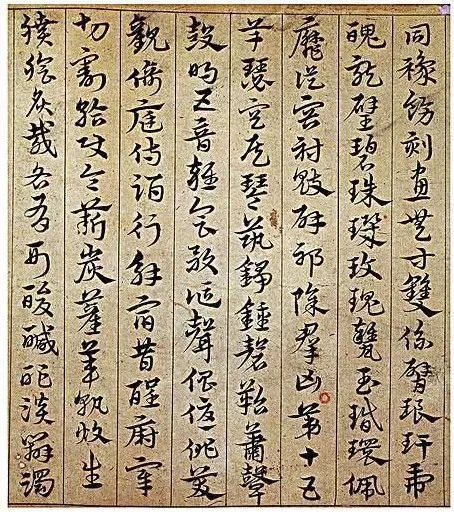 同襐飾刻畫無等雙係臂琅玕虎
魄龍璧碧珠璣玫瑰甕玉玦環佩
靡從容射魃辟邪除羣凶第十五
竽瑟空侯琴筑錚鍾磬鞀蕭鼙
鼓鳴五音雜會歌謳聲倡優俳笑
觀倚庭侍酒行觴宿昔酲廚宰
切割給使令薪炭雚葦孰炊生
膹膾炙胾各有形酸鹹酢淡辨濁